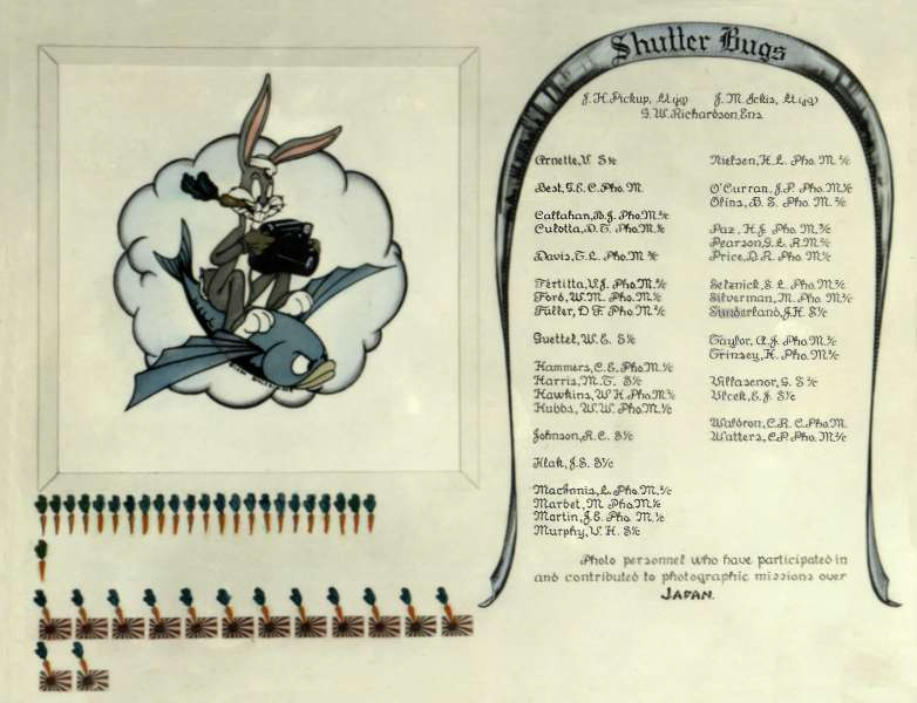 Shutter Bugs
J.H.Pickup, Lt.(jg) J.M.Ickis, Lt.(jg)
G.W.Richardson, Ens.
Arnette, V. S⅟c
Best, G.E. C.Pho.M.
Callahan, D.J. Pho.M.
Culotta, D.T. Pho.M.
Davis, T.L. Pho.M.
Fertitta, V.J. Pho.M.
Ford, W.M. Pho.M.
Fuller, D.F. Pho.M.
Guettel, W.E.
Hammers, C.E. Pho.M.
Harris, M.T.
Hawkins, W.H. Pho.M.
Hubbs, W.W. Pho.M.
Johnson, R.C.
Klak, J.S.
MacInnis, L. Pho.M.
Marbet, M. Pho.M.
Martin, J.E. Pho.M.
Murphy, W.H.
Nielsen, H.L. Pho.M.
O'Curran, J.P. Pho.M.
Olins, B.S. Pho.M.
Paz, H.J. Pho.M.
Pearson, G.L. R.M.
Price, D.R. Pho.M.
Selznick, S.L. Pho.M.
Silverman, M. Pho.M.
Sunderland, J.H.
Taylor, A.J. Pho.M.
Trinsey, H. Pho.M.
Villasenor, G.
Vlcek, E.J.
Waldron, C.R. C.Pho.M.
Watters, C.P. Pho.M.
Photo personnel who have participated in
and contributed to photographic missions over
JAPAN.